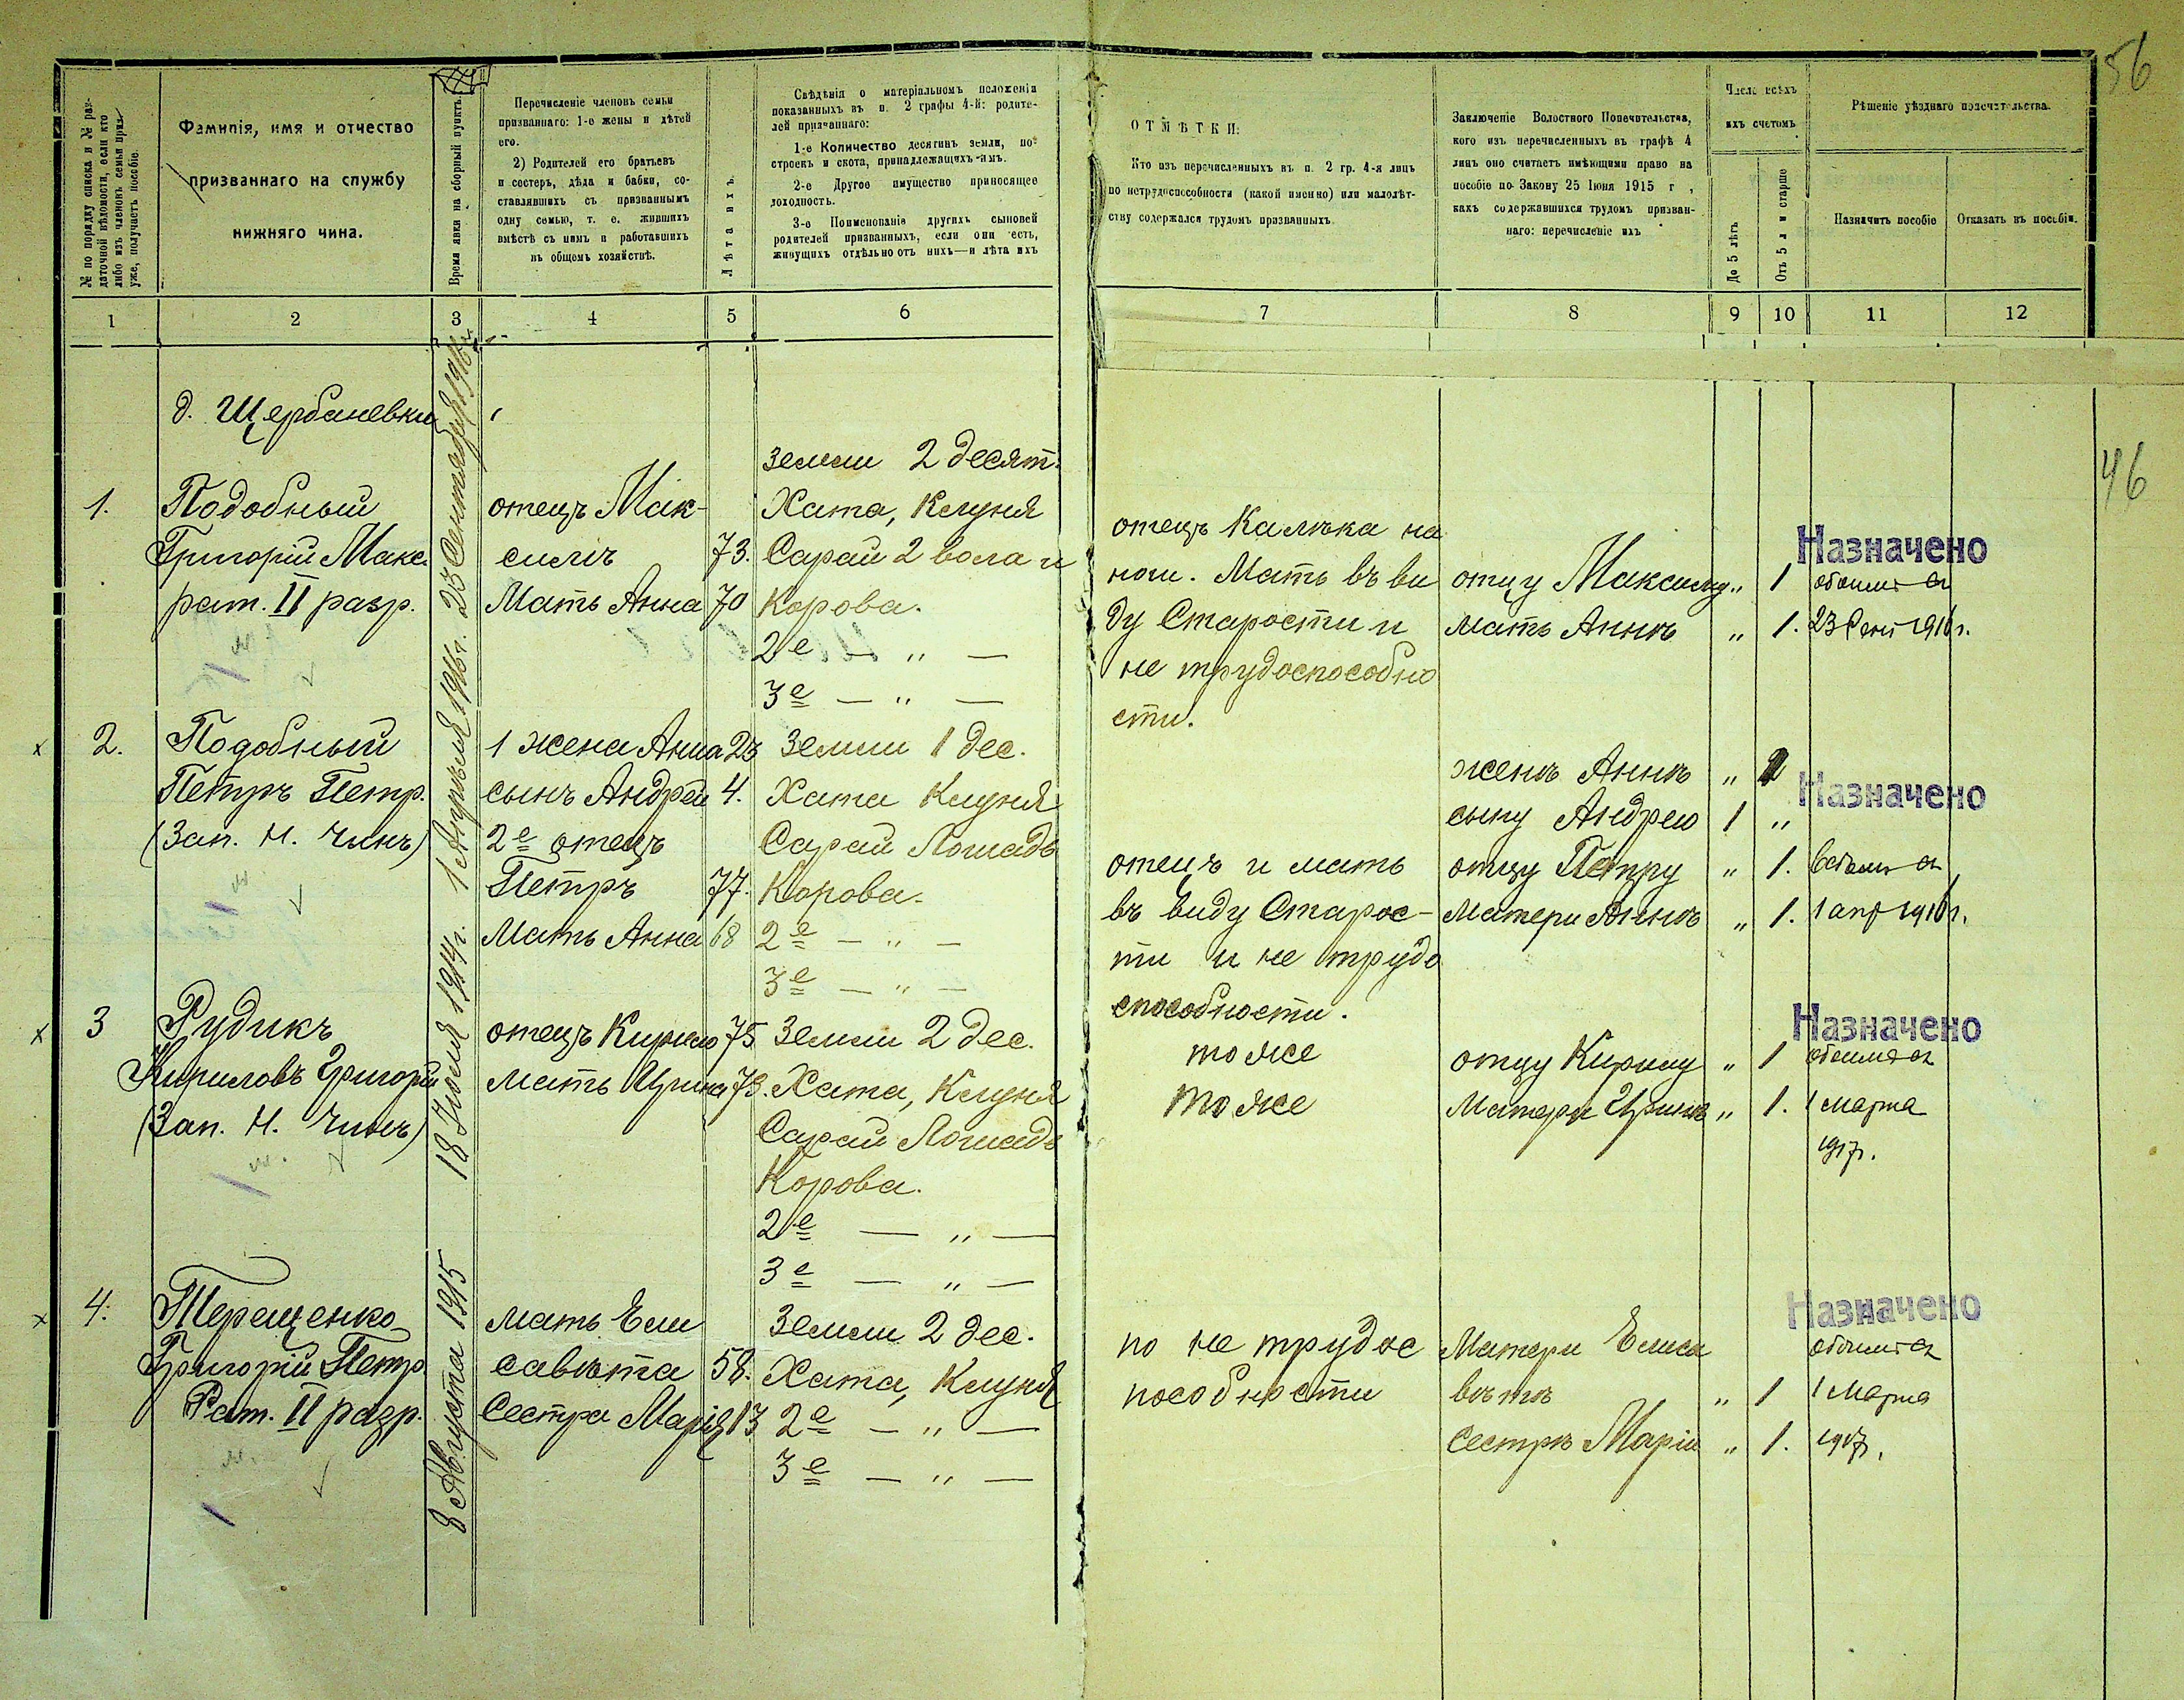 56
46
№ по порядку списка и № раз-
даточной вѣдомости, если кто
либо изъ членовъ семьи приз.
уже, получаетъ пособіе.
Фамилія, имя и отчество
призваннаго на службу
нижняго чина.
Время явки на сборный пунктъ.
Перечисленіе членовъ семьи
призваннаго: 1-е жены и дѣтей
его.
2) Родителей его братьевъ
и сестеръ, дѣда и бабки, со-
ставлявшихъ съ призваннымъ
одну семью, т. е. жившихъ
вмѣстѣ съ нимъ и работавшихъ
въ общемъ хозяйствѣ.
Лѣта ихъ.
Свѣдѣнія о матеріальномъ положеніи
показанныхъ въ п. 2 графы 4-й: родите-
лей призваннаго:
1-е Количество десятинъ земли, по-
строекъ и скота, принадлежащихъ-имъ.
2-е Другое имущество приносящее
доходность.
3-е Поименованіе другихъ сыновей
родителей призванныхъ, если они есть,
живущихъ отдѣльно отъ нихъ—и лѣта ихъ
ОТМѢТКИ:
Кто изъ перечисленныхъ въ п. 2 гр. 4-я лицъ
по нетрудоспособности (какой именно) или малолѣт-
ству содержался трудомъ призванныхъ
Заключеніе Волостного Попечительства,
кого изъ перечисленныхъ въ графѣ 4
лицъ оно считаетъ имѣющими право на
пособіе по Закону 25 Іюня 1915 г ,
какъ содержавшихся трудомъ призван-
наго: перечисленіе ихъ
Число всѣхъ
ихъ счетомъ
До 5 лѣтъ
Отъ 5 л и старше
Рѣшеніе уѣзднаго попечительства.
Назначить пособіе
Отказать въ пособіи.
1 2 3 4 5 6 7 8 9 10 11 12
д. Щербаневки
1.
Подобный
Григорій Макс.
рат. II разр.
23 Сентября 1916 г.
отецъ Мак-
симъ 73.
Мать Анна 70
земли 2 десят.
Хата, Клуня
Сарай 2 вола и
Корова.
2е — " —
3е — " —
отецъ Калѣка на
ноги. Мать въ ви
ду Старости и
не трудоспособно
сти.
отцу Максиму " 1
мать Аннѣ " 1.
Назначено
обоимъ съ
23 Сент 1916 г.
2.
Подобный
Петръ Петр.
(Зап. Н. Чинъ)
1 Апрѣля 1916 г.
1 жена Анна 23
сынъ Андрей 4.
2е отецъ
Петръ 77.
Мать Анна 68
Земли 1 дес.
Хата Клуня
Сарай Лошадь
Корова.
2е — " —
3е — " —
отецъ и мать
въ виду Старос-
ти и не трудо
способности.
женѣ Аннѣ "
сыну Андрею 1 "
отцу Петру " 1.
Матери Аннѣ " 1.
Назначено
всѣмъ съ
1 апр 1916 г.
3
Рудикъ
Кириловъ Григорій
(Зап. Н. Чинъ)
18 Іюля 1914 г.
отецъ Кирило 75
мать Ирина 73.
Земли 2 дес.
Хата, Клуня
Сарай Лошадь
Корова.
2е — " —
3е — " —
тоже
тоже
отцу Кирилу " 1
Матери Иринѣ " 1.
Назначено
обоимъ съ
1 марта
1917 г.
4.
Терещенко
Григорій Петр.
Рат. II разр.
8 Августа 1915
мать Ели
савѣта 58.
Сестра Марія 13
Земли 2 дес.
Хата, Клуня
2е — " —
3е — " —
по не трудос
пособности
Матери Елиса
вѣтѣ " 1
Сестрѣ Маріи " 1.
Назначено
обоимъ съ
1 Марта
1917 г.